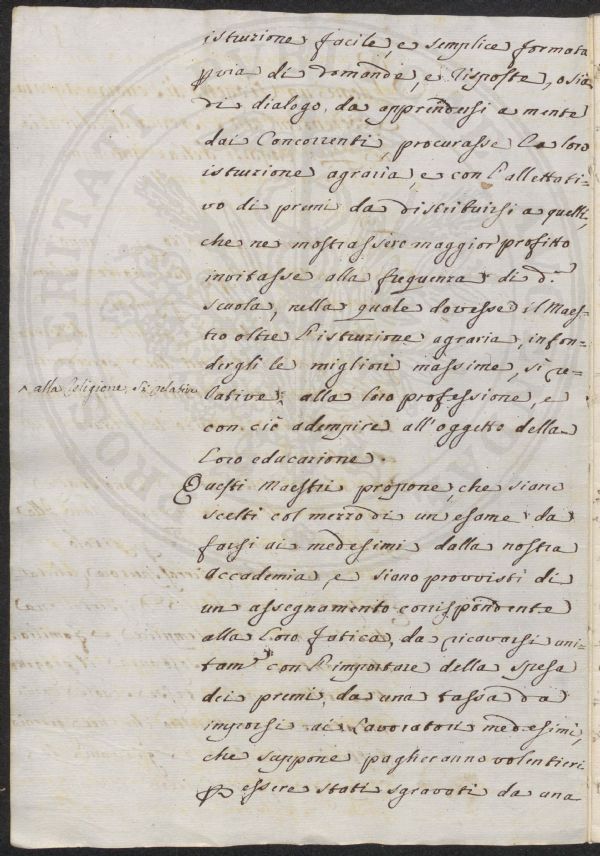 istruzione facile, e semplice formata
p via di domande, e risposte, o sia
di dialogo, da apprendersi a mente
dai Concorrenti, procurasse la loro
istruzione agraria, e con l'allettati-
vo di premi da distribuirsi a quelli,
che ne mostrassero maggior profitto
invitasse alla frequenza di d.ª
scuola, nella quale dovesse il Maes-
tro oltre l'istruzione agraria, infon-
dergli le migliori massime, si re-
^ alla Religione, si relative
lative ^ alla loro professione, e
con ciò adempire all'oggetto della
loro educazione.
Questi Maestri propone, che siano
scelti col mezzo di un esame da
farsi ai medesimi dalla nostra
Accademia, e siano provvisti di
un assegnamento corrispondente
alla loro fatica, da ricavarsi uni-
tam.e con l'importare della spesa
dei premi, da una tassa da
imporsi ai Lavoratori medesimi,
che suppone pagheranno volentieri
p essere stati sgravati da una
PROSPERITATI